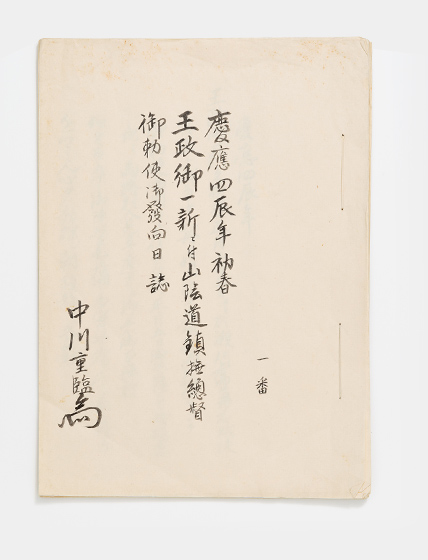 一番
慶應四辰年初春
王政御一新ニ付山陰道鎮撫總督
御勅使御發向日誌
中川重臨